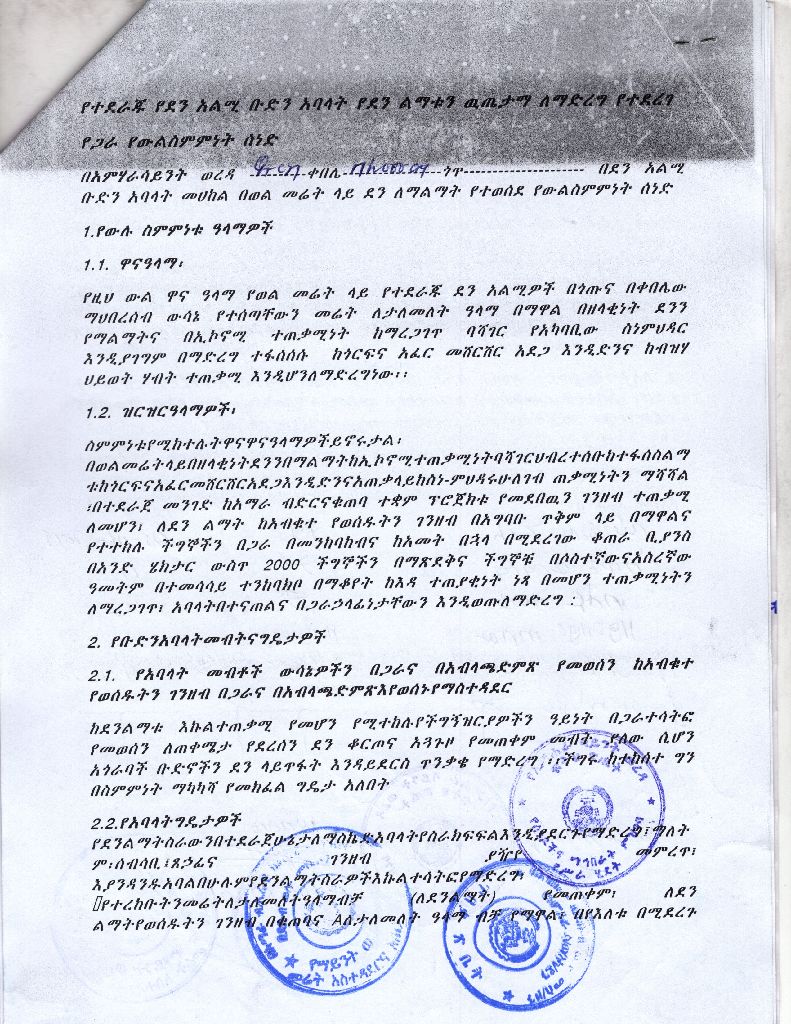 የተደራጁ የደን አልሚ ቡድን አባላት የደን ልማቱን ዉጤታማ ለማድረግ የተደረገ
የጋራ የውልስምምነት ሰነድ
በአምሃራሳይንት ወረዳ ---------ቀበሌ---------------ጎጥ---------------------- በደን አልሚ
ቡድን አባላት መሀከል በወል መሬት ላይ ደን ለማልማት የተወሰደ የውልስምምነት ሰነድ
1.የውሉ ስምምነቱ ዓላማዎች
1.1. ዋናዓላማ፡
የዚህ ውል ዋና ዓላማ የወል መሬት ላይ የተደራጁ ደን አልሚዎች በጎጡና በቀበሌው
ማህበረሰብ ውሳኔ የተሰጣቸውን መሬት ለታለመለት ዓላማ በማዋል በዘላቂነት ደንን
የማልማትና በኢኮኖሚ ተጠቃሚነት ከማረጋገጥ ባሻገር የአካባቢው ስነምህዳር
እንዲያገግም በማድረግ ተፋሰሰሱ ከጎርፍና አፈር መሸርሸር አደጋ እንዲድንና ከብዝሃ
ህይወት ሃብት ተጠቃሚ እንዲሆንለማድረግነው፡፡
1.2. ዝርዝርዓላማዎች፡
ስምምነቱየሚከተሉትዋናዋናዓላማዎችይኖሩታል፡
በወልመሬትላይበዘላቂነትደንንበማልማትከኢኮኖሚተጠቃሚነትባሻገርህብረተሰቡከተፋሰስልማ
ቱከጎርፍናአፈርመሸርሸርአደጋእንዲድንናአጠቃላይከስነ-ምህዳሩሁለገብ ጠቃሚነትን ማሻሻል
፡በተደራጀ መንገድ ከአማራ ብድርናቁጠባ ተቋም ፕሮጀክቱ የመደበዉን ገንዘብ ተጠቃሚ
ለመሆን፣ ለደን ልማት ከአብቁተ የወሰዱትን ገንዘብ በአግባቡ ጥቅም ላይ በማዋልና
የተተከሉ ችግኞችን በጋራ በመንከባከብና ከአመት በኋላ በሚደረገው ቆጠራ ቢያንስ
በአንድ ሄክታር ውስጥ 2000 ችግኞችን በማጽደቅና ችግኞቹ በሶስተኛውናአስረኛው
ዓመትም በተመሳሳይ ተንከባክቦ በማቆየት ከእዳ ተጠያቂነት ነጻ በመሆን ተጠቃሚነትን
ለማረጋገጥ፣ አባላትበተናጠልና በጋራኃላፊነታቸውን እንዲወጡለማድረግ ፡
2. የቡድንአባላትመብትናግዴታዎች
2.1. የአባላት መብቶች ውሳኔዎችን በጋራና በአብላጫድምጽ የመወሰን ከአብቁተ
የወሰዱትን ገንዘብ በጋራና በአብላጫድምጽእየወሰኑየማስተዳደር
ከደንልማቱ እኩልተጠቃሚ የመሆን የሚተከሉየችግኝዝርያዎችን ዓይነት በጋራተሳትፎ
የመወሰን ለጠቀሜታ የደረሰን ደን ቆርጦና አጓጉዞ የመጠቀም መብት ያለው ሲሆን
አጎራባች ቡድኖችን ደን ላይጥፋት እንዳይደርስ ጥንቃቄ የማድረግ ፡፡ችግሩ ከተከሰተ ግን
በስምምነት ማካካሻ የመክፈል ግዴታ አለበት
2.2.የአባላትግዴታዎች
የደንልማትስራውንበተደራጀሁኔታለማስኬድአባላትየስራክፍፍልእንዲያደርጉየማድረግ፣ማለት
ም፡ሰብሳቢ፣ጸኃፊና ገንዘብ ያዥየ መምረጥ፣
እያንዳንዱአባልበሁሉምየደንልማትስራዎችእኩልተሳትፎየማድረግ፣
የተረከቡትንመሬትለታለመለትዓላማብቻ (ለደንልማት) የመጠቀም፣ ለደን
ልማትየወሰዱትን ገንዘብ በቁጠባና Aለታለመለት ዓላማ ብቻ የማዋል፣ በየእለቱ በሚደረጉ